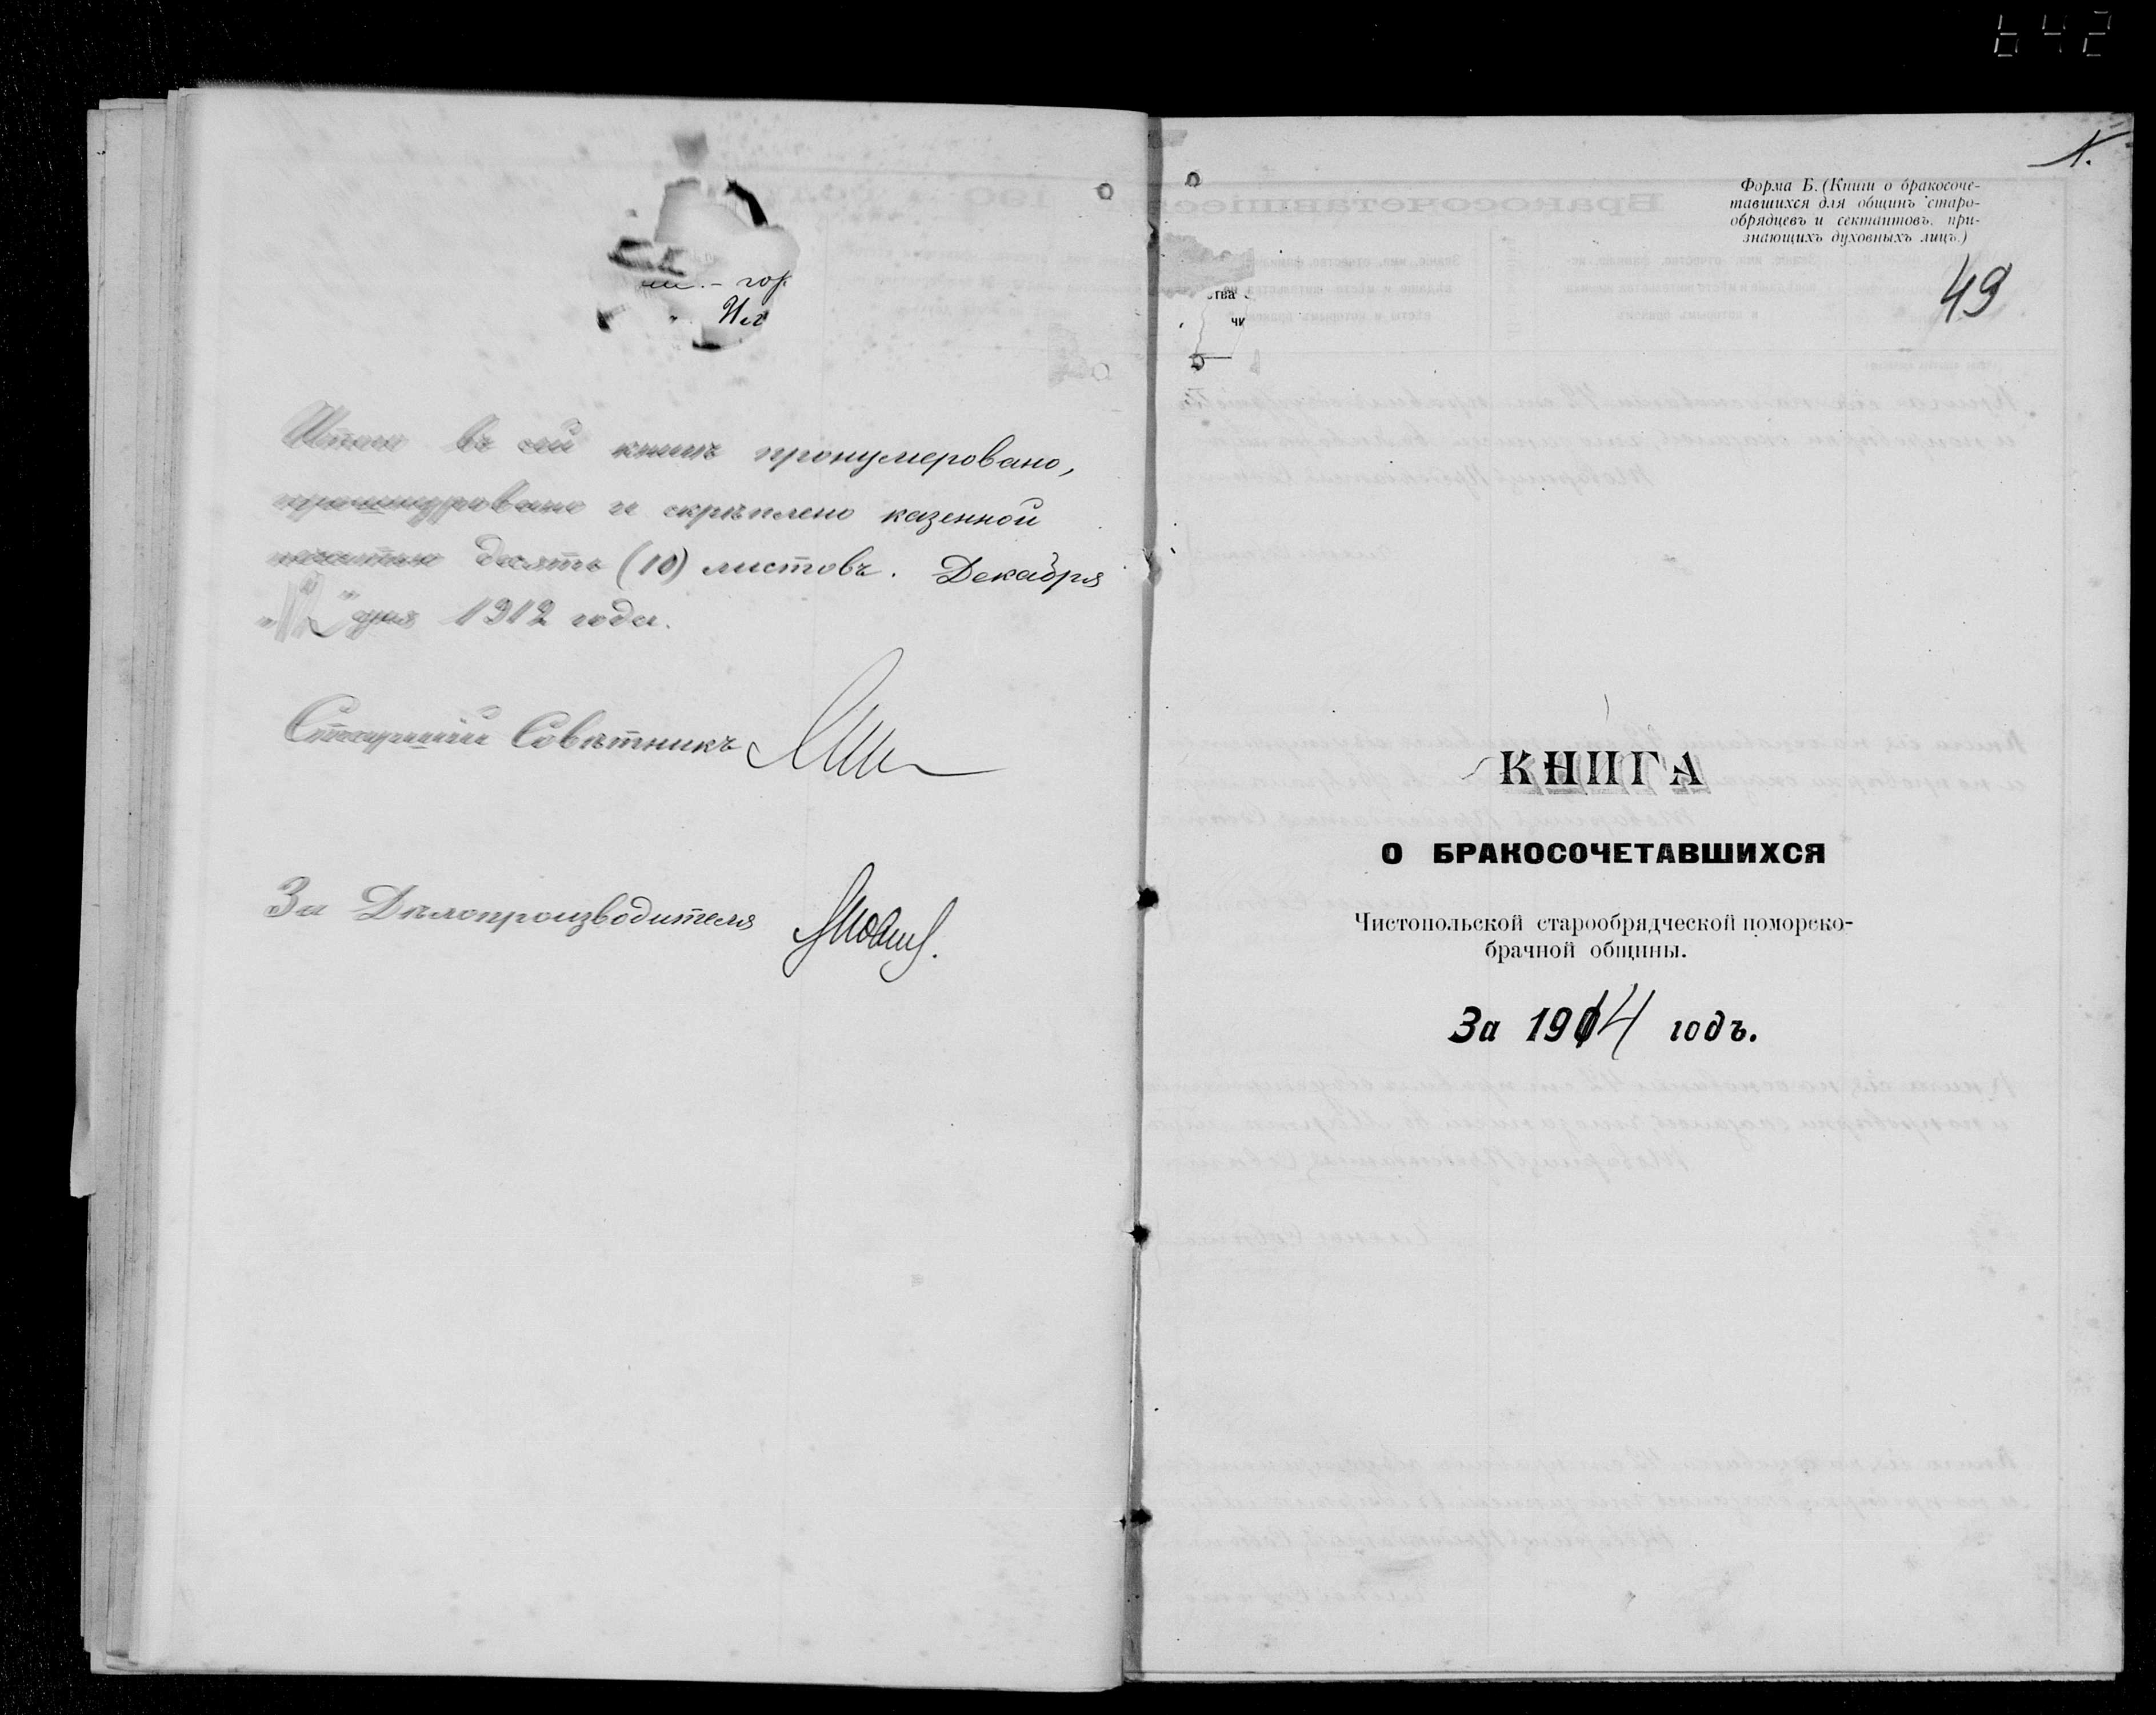 642
Итого въ сей книгѣ пронумеровано,
прошнуровано и скрѣплено казенной
печатью десять (10) листовъ. Декабря
"12" дня 1912 года.
Старшій Совѣтникъ
За Дѣлопроизводителя
1.
Форма Б. (Книги о бракосоче-
тавшихся для общинъ старо-
обрядцевъ и сектантовъ, при-
знающихъ духовныхъ лицъ.)
49
КНИГА
О БРАКОСОЧЕТАВШИХСЯ
Чистопольской старообрядческой поморско-
брачной общины.
За 1914 годъ.